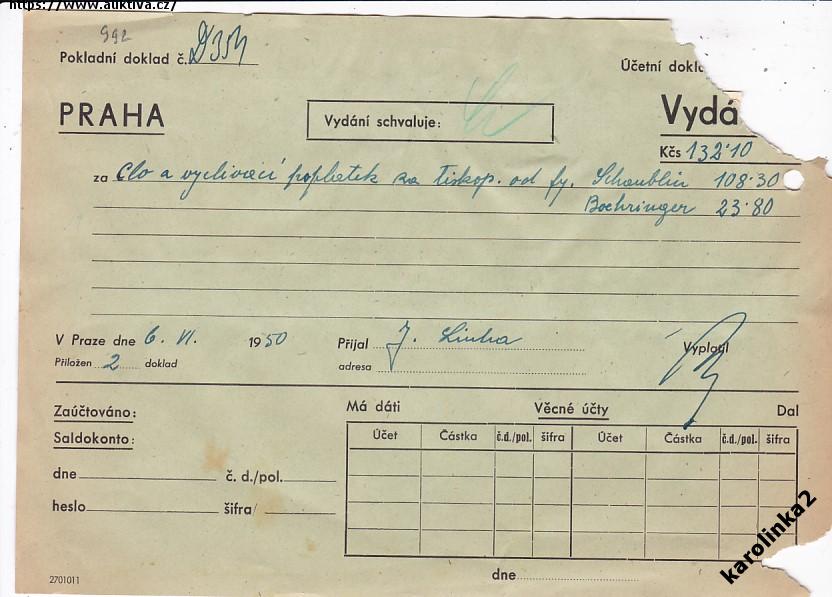 https://www.auktiva.cz/
992
Pokladní doklad č. D354
Účetní dokl
PRAHA
Vydání schvaluje:
Vydá
Kčs 132·10
za Clo a vyclívací poplatek za tiskop. od fy. Schaublin 108·30
Boehringer 23·80
V Praze dne 6. VI. 1950 Přijal J. Linha Vyplatil
Přiložen 2 doklad adresa
Zaúčtováno: Má dáti Věcné účty Dal
Saldokonto: Účet Částka č.d./pol. šifra Účet Částka č.d./pol. šifra
dne č. d./pol.
heslo šifra/
dne
2701011
karolinka2